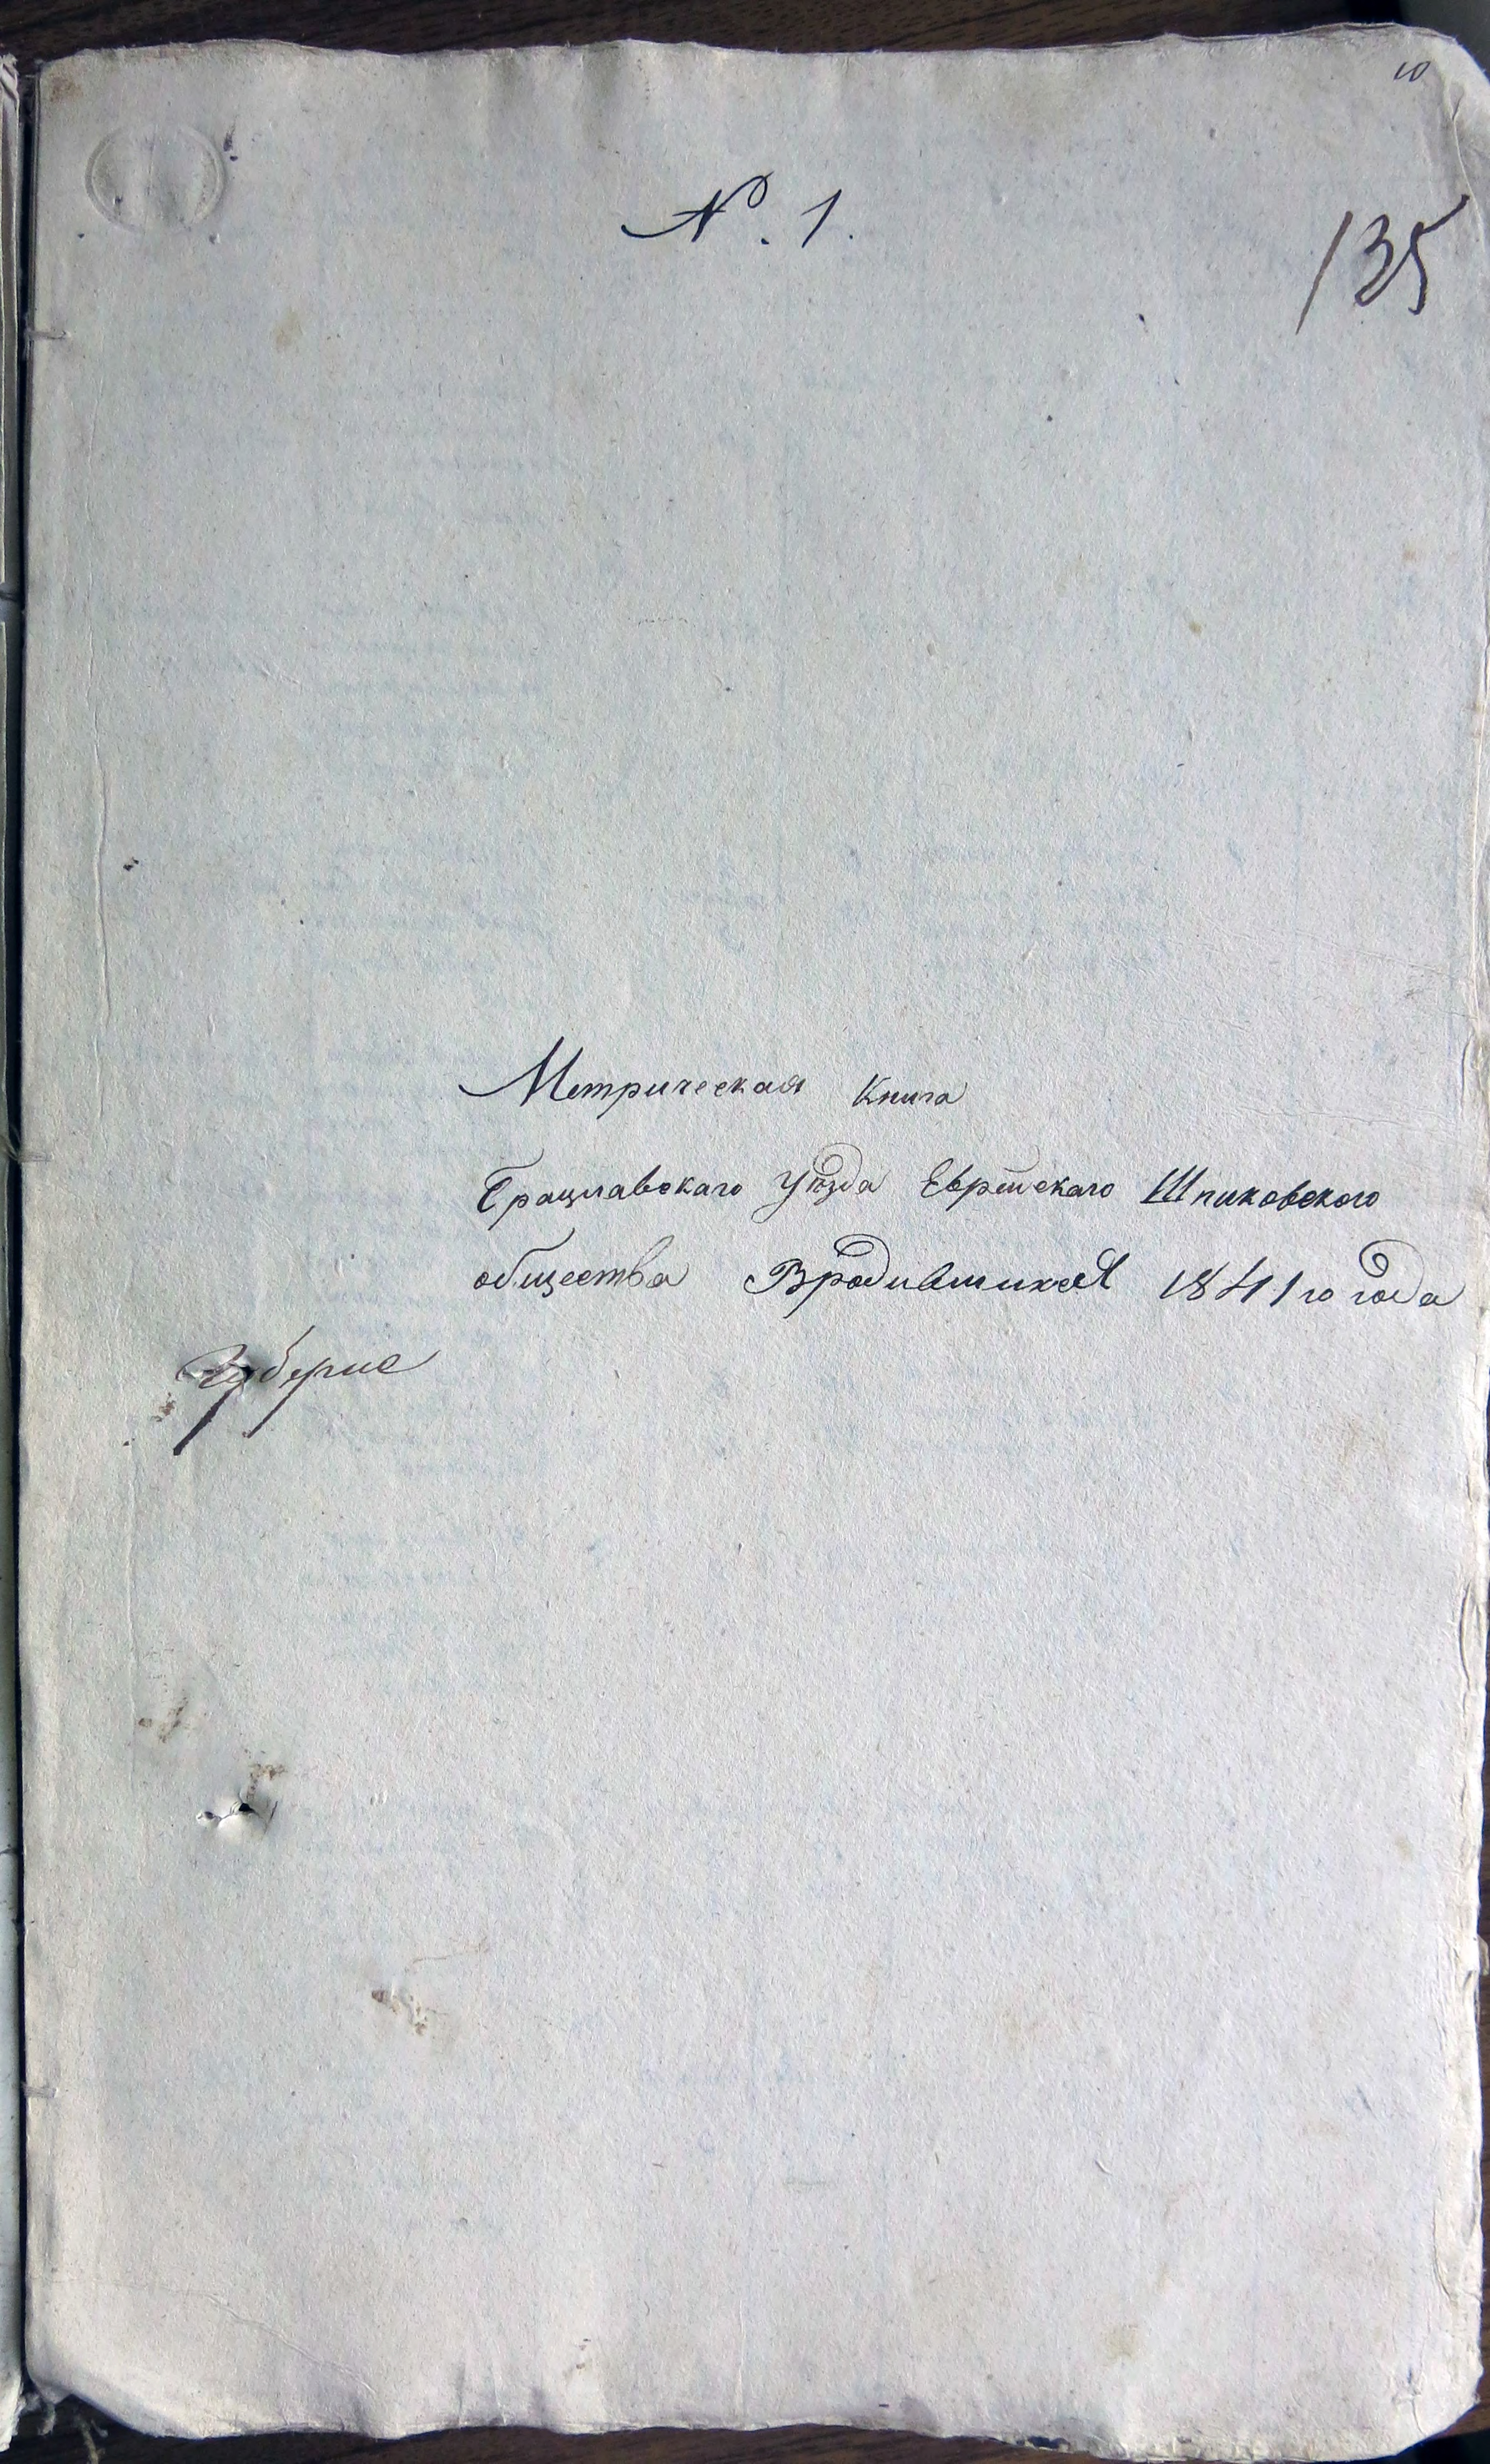 10
№. 1.
135
Метрическая Книга
Брацлавскаго Уѣзда Еврейскаго Шпиковского
общества Вродившихся 1841го года
Губерис